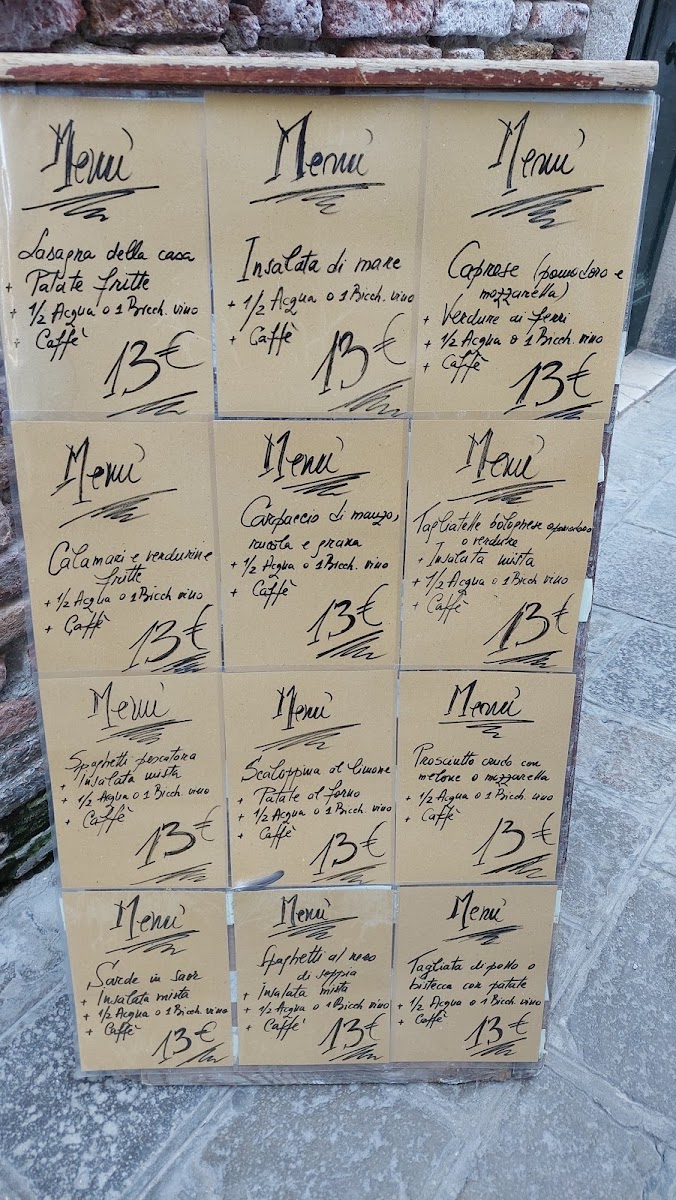 Menù
Lasagna della casa
+ Patate fritte
+ 1/2 Acqua o 1 Bicch. vino
+ Caffè
13€
Menù
Insalata di mare
+ 1/2 Acqua o 1 Bicch. vino
+ Caffè
13€
Menù
Caprese (pomodoro e
mozzarella)
+ Verdure ai ferri
+ 1/2 Acqua o 1 Bicch. vino
+ Caffè
13€
Menù
Calamari e verdurine
fritte
+ 1/2 Acqua o 1 Bicch vino
+ Caffè
13€
Menù
Carpaccio di manzo,
rucola e grana
+ 1/2 Acqua o 1 Bicch. vino
+ Caffè
13€
Menù
Tagliatelle bolognese o pomodoro
o verdure
+ Insalata mista
+ 1/2 Acqua o 1 Bicch. vino
+ Caffè
13€
Menù
Spaghetti pescatora
+ Insalata mista
+ 1/2 Acqua o 1 Bicch. vino
+ Caffè
13€
Menù
Scaloppina al limone
+ Patate al forno
+ 1/2 Acqua o 1 Bicch. vino
+ Caffè
13€
Menù
Prosciutto crudo con
melone o mozzarella
+ 1/2 Acqua o 1 Bicch. vino
+ Caffè
13€
Menù
Sarde in saor
+ Insalata mista
+ 1/2 Acqua o 1 Bicch. vino
+ Caffè
13€
Menù
Spaghetti al nero
di seppia
+ Insalata mista
+ 1/2 Acqua o 1 Bicch. vino
+ Caffè
13€
Menù
Tagliata di pollo o
bistecca con patate
+ 1/2 Acqua o 1 Bicch. vino
+ Caffè
13€